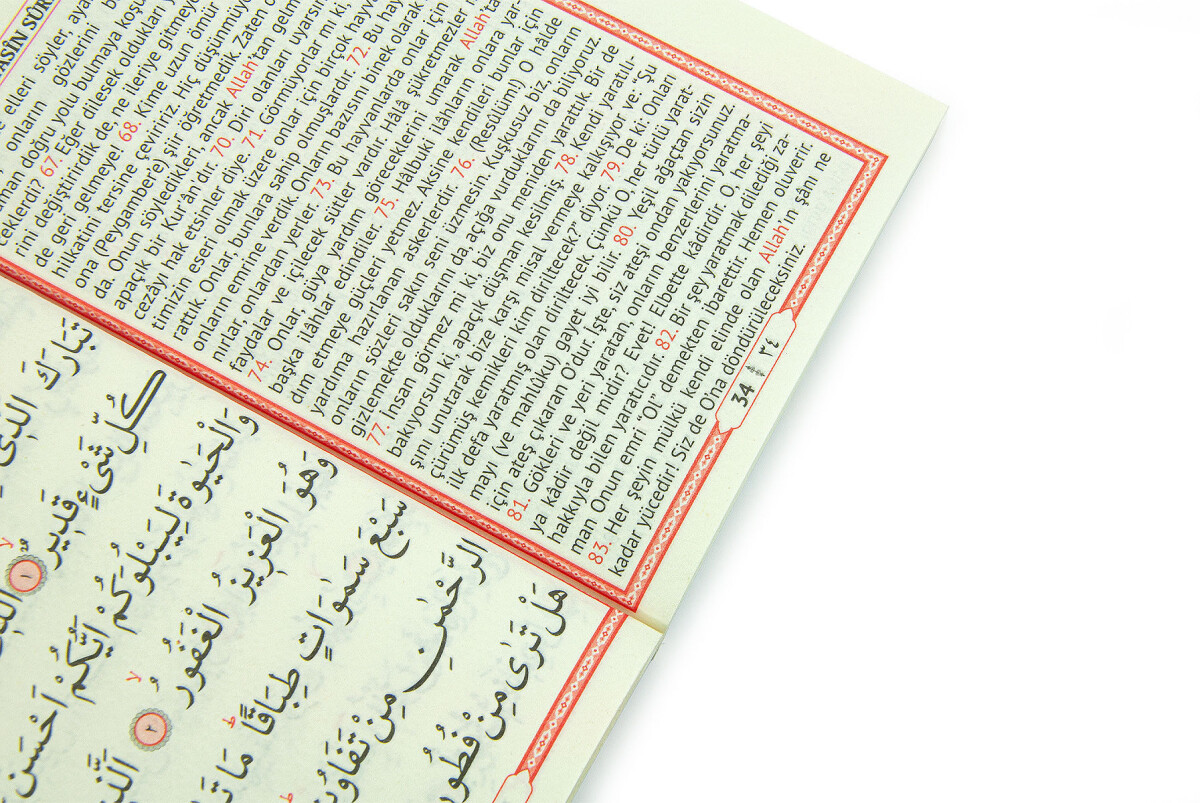 ASİN SÛR
elleri söyler, aya
onların gözlerini
doğru yolu bulmaya koşu
ceklerdi? 67. Eğer dilesek oldukları y
rini değiştirirdik de, ne ileriye gitmeye
de geri gelmeye! 68. Kime uzun ömür
hilkatini tersine çeviririz. Hiç düşünmüyo
ona (Peygamber'e) şiir öğretmedik. Zaten o
da. Onun söyledikleri ancak Allah'tan gelm
apaçık bir Kur'ân'dır. 70. Diri olanları uyarsın
cezâyı hak etsinler diye. 71. Görmüyorlar mı ki,
timizin eseri olmak üzere onlar için birçok hayv
rattık. Onlar, bunlara sahip olmuşlardır. 72. Bu hay
onların emrine verdik. Onların bazısını binek olarak
nırlar, onlardan yerler. 73. Bu hayvanlarda onlar için
faydalar ve içilecek sütler vardır. Hâlâ şükretmezler m
74. Onlar, güya yardım göreceklerini umarak Allah'ta
başka ilâhlar edindiler. 75. Hâlbuki ilânların onlara yar
dım etmeye güçleri yetmez. Aksine kendileri bunlar için
yardıma hazırlanan askerlerdir. 76. (Resûlüm) O hâlde
onların sözleri sakın seni üzmesin. Kuşkusuz biz, onların
gizlemekte olduklarını da, açığa vurduklarını da biliyoruz.
77. İnsan görmez mi ki, biz onu meniden yarattık. Bir de
bakıyorsun ki, apaçık düşman kesilmiş. 78. Kendi yaratılı-
şını unutarak bize karşı misal vermeye kalkışıyor ve: "Şu
çürümüş kemikleri kim diriltecek?" diyor. 79. De ki: Onları
ilk defa yaratmış olan diriltecek. Çünkü O, her türlü yarat-
mayı (ve mahlûku) gayet iyi bilir. 80. Yeşil ağaçtan sizin
için ateş çıkaran O'dur. İşte, siz ateşi ondan yakıyorsunuz.
81. Gökleri ve yeri yaratan, onların benzerlerini yaratma-
ya kâdir değil midir? Evet! Elbette kâdirdir. O, her şeyi
hakkıyla bilen yaratıcıdır. 82. Bir şey yaratmak dilediği za-
man Onun emri "Ol" demekten ibarettir. Hemen oluverir.
83. Her şeyin mülkü kendi elinde olan Allah'ın şânı ne
kadar yücedir! Siz de O'na döndürüleceksiniz.
34 ٣٤
تَبَارَكَ الَّذٖى
كُلِّ شَیْءٍ قَدٖيرٌ ۙ ١
وَالْحَيٰوةَ لِيَبْلُوَكُمْ اَيُّكُمْ اَحْسَنُ
وَهُوَ الْعَزٖيزُ الْغَفُورُ ۙ ٢
سَبْعَ سَمٰوَاتٍ طِبَاقًا ۜ مَا
الرَّحْمٰنِ مِنْ تَفَاوُتٍ
هَلْ تَرٰى مِنْ فُطُورٍ